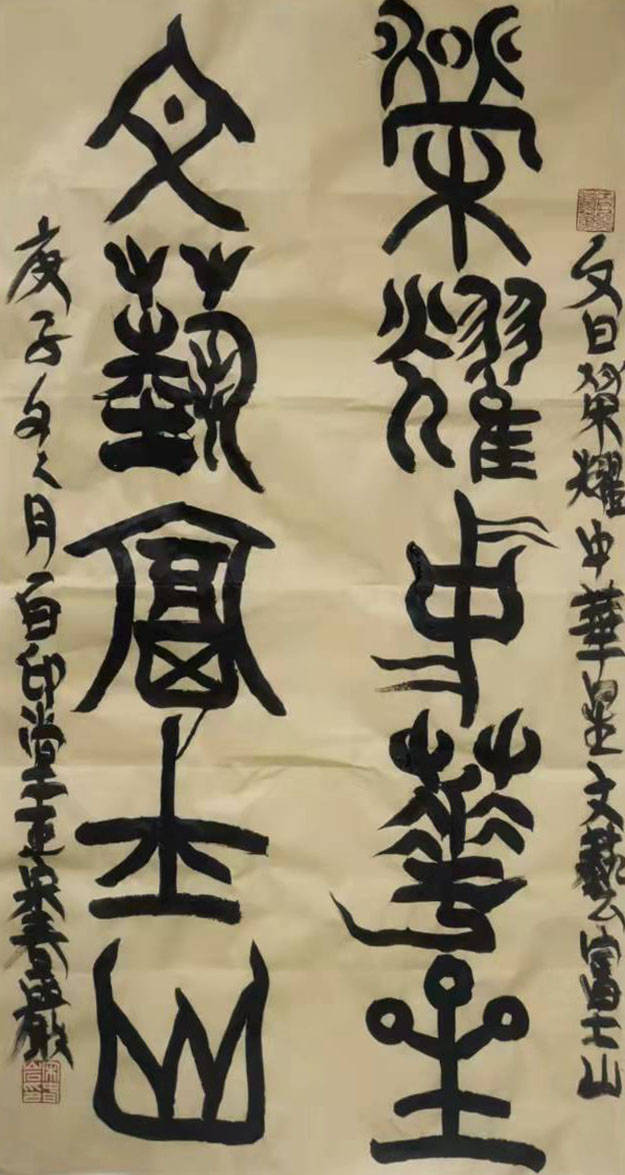 文曰榮耀中華星文藝富士山
榮耀中華星
文藝富士山
庚子冬之月百印堂主